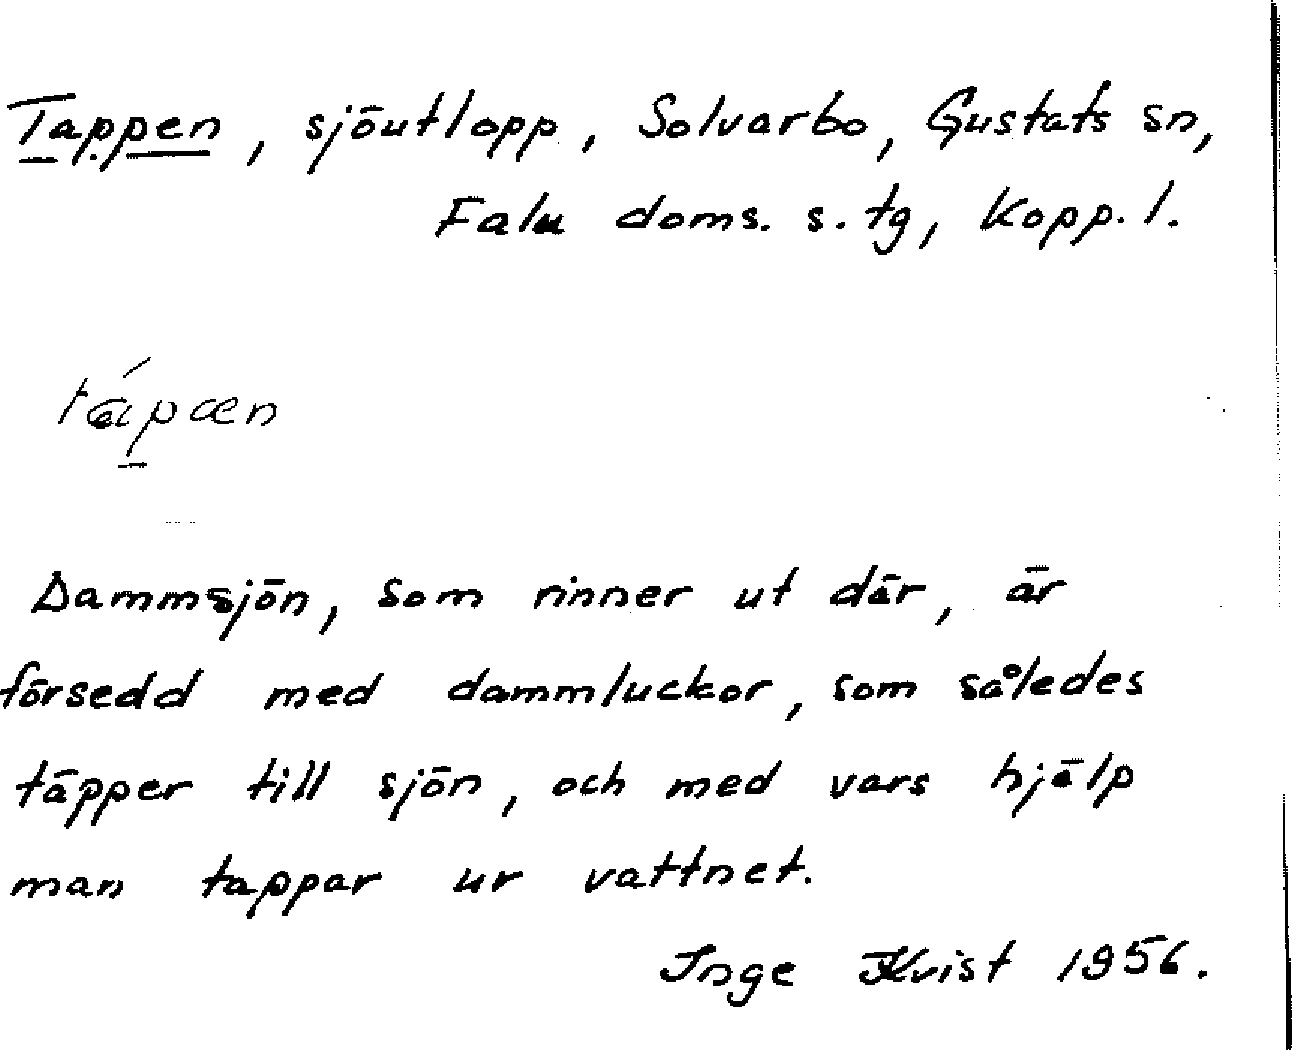 Tappen, sjöutlopp, Solvarbo, Gustafs sn,
Falu doms. s. tg, Kopp. l.
tápæn
Dammsjön, som rinner ut där, är
försedd med dammluckor, som således
täpper till sjön, och med vars hjälp
man tappar ur vattnet.
Inge Kvist 1956.